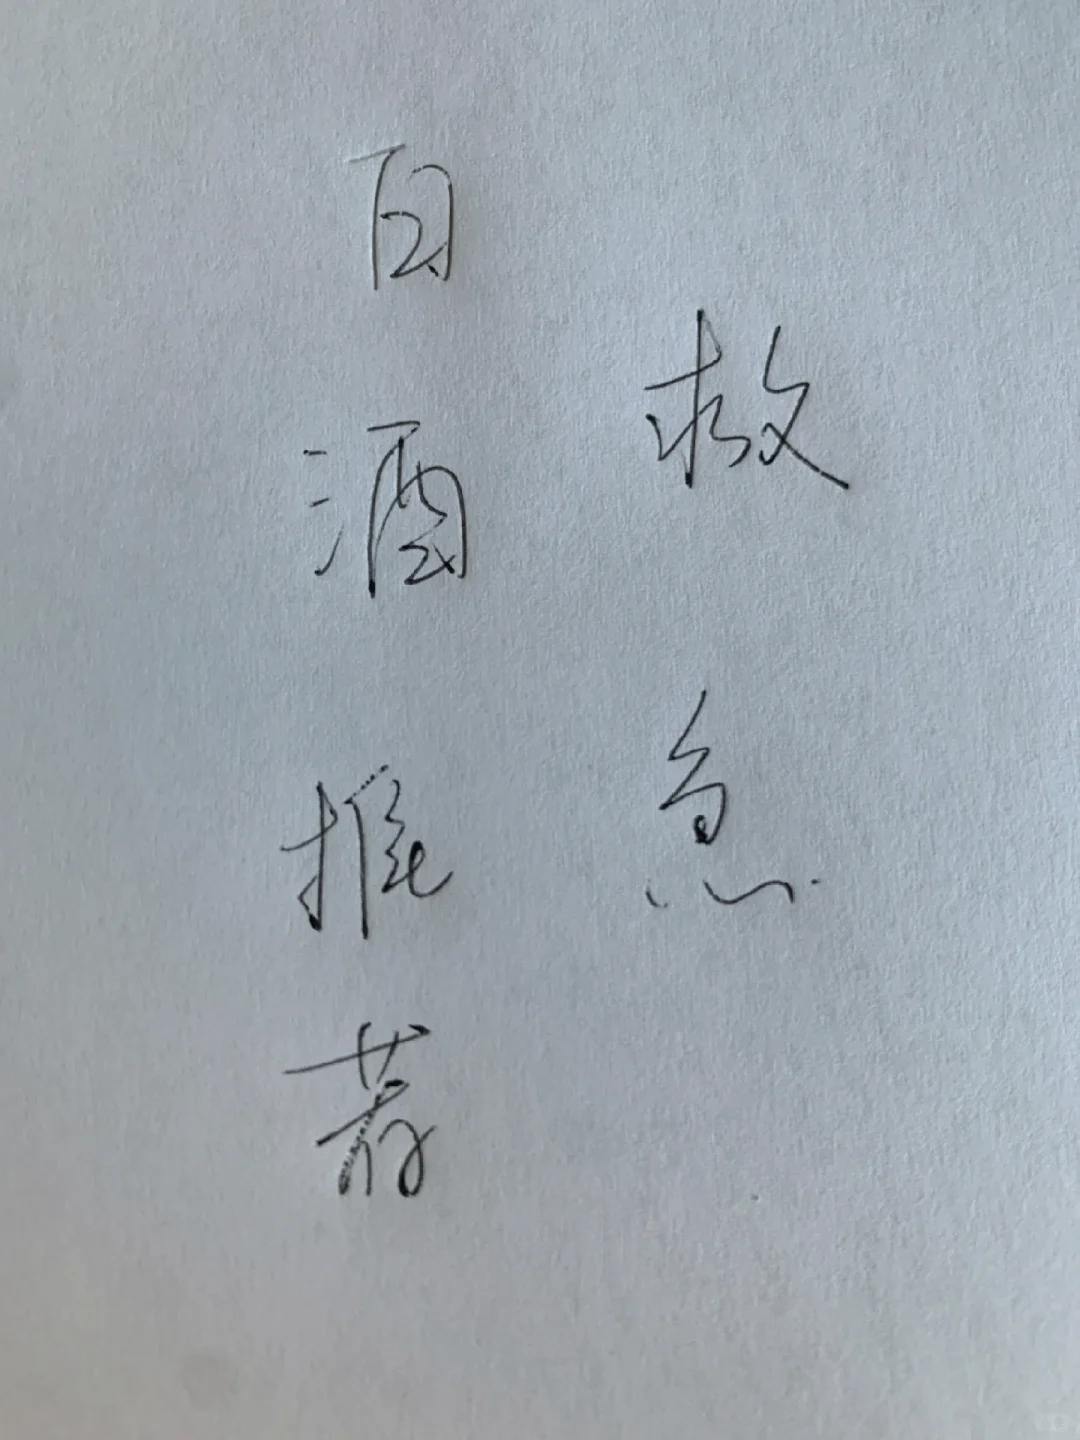 救急
白酒推荐